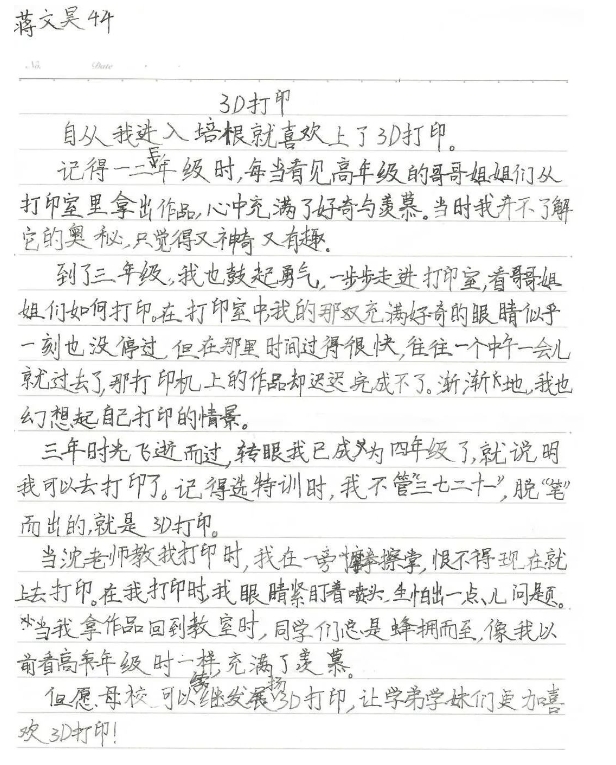 蒋文昊 44
No. Date
3D打印
自从我进入培根就喜欢上了3D打印。
记得一二年级时,每当看见高年级的哥哥姐姐们从
打印室里拿出作品,心中充满了好奇与羡慕。当时我并不了解
它的奥秘,只觉得又神奇又有趣。
到了三年级,我也鼓起勇气,一步步走进打印室,看哥哥姐
姐们如何打印。在打印室中,我的那双充满好奇的眼睛似乎
一刻也没停过,但在那里时间过得很快,往往一个中午一会儿
就过去了,那打印机上的作品却迟迟完成不了。渐渐地,我也
幻想起自己打印的情景。
三年时光飞逝而过,转眼我已成为四年级了,就说明
我可以去打印了。记得选特训时,我不管“三七二十一”,脱“笔”
而出的,就是3D打印。
当沈老师教我打印时,我在一旁摩拳擦掌,恨不得现在就
上去打印。在我打印时,我眼睛紧盯着喷头,生怕出一点儿问题。
当我拿作品回到教室时,同学们总是蜂拥而至,像我以
前看高年级时一样,充满了羡慕。
但愿,母校可以继续发扬3D打印,让学弟学妹们更加喜
欢3D打印!